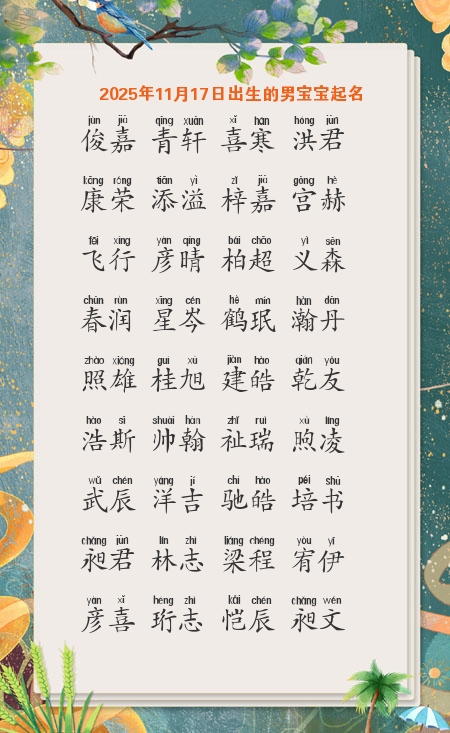 2025年11月17日出生的男宝宝起名
jùn jiā qīng xuān xǐ hán hóng jūn
俊嘉 青轩 喜寒 洪君
kāng róng tiān yì zǐ jiā gōng hè
康荣 添溢 梓嘉 宫赫
fēi xíng yàn qíng bǎi chāo yì sēn
飞行 彦晴 柏超 义森
chūn rùn xīng cén hè mín hàn dān
春润 星岑 鹤珉 瀚丹
zhào xióng guì xù jiàn hào qián yǒu
照雄 桂旭 建皓 乾友
hào sī shuài hàn zhǐ ruì xù líng
浩斯 帅翰 祉瑞 煦凌
wǔ chén yáng jí chí hào péi shū
武辰 洋吉 驰皓 培书
chǎng jūn lín zhì liáng chéng yòu yī
昶君 林志 梁程 宥伊
yàn xǐ héng zhì kǎi chén chǎng wén
彦喜 珩志 恺辰 昶文